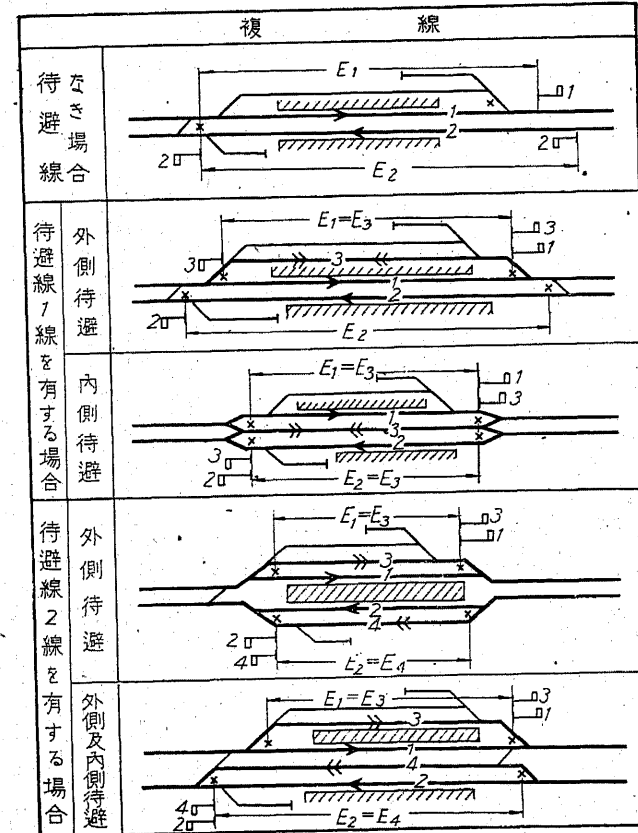 複線
待避線なき場合
E1
1
1
2
2
2
E2
待避線1線を有する場合
外側待避
E1=E3
3
1
3
3
1
2
2
E2
內側待避
E1=E3
1
3
1
3
2
3
2
E2=E3
待避線2線を有する場合
外側待避
E1=E3
3
1
3
1
2
4
2
4
E2=E4
外側及內側待避
E1=E3
3
1
3
1
4
2
4
2
E2=E4